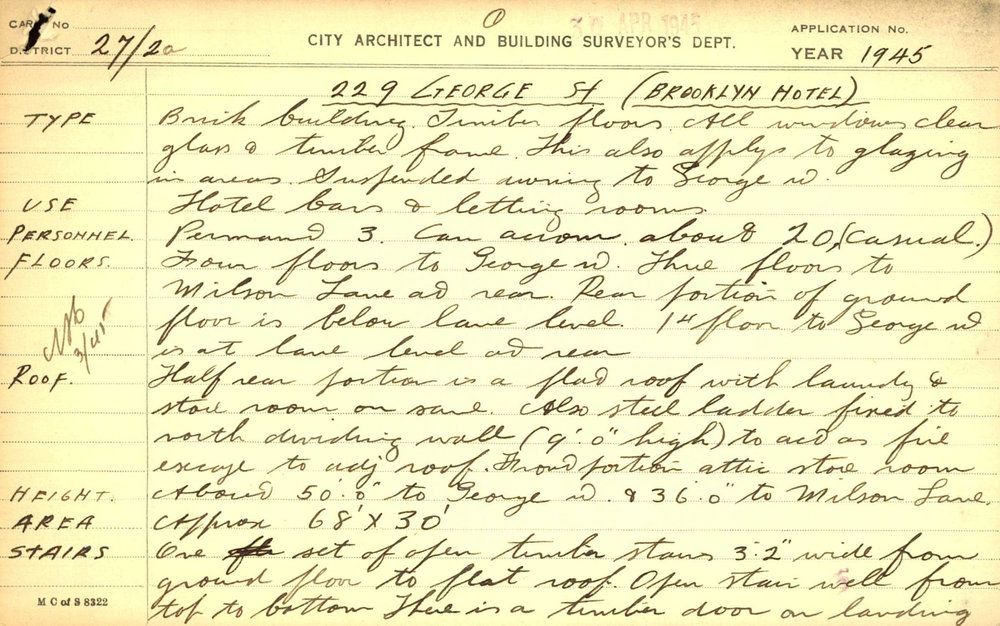 CARD No
30 APR 1945
APPLICATION No.
DISTRICT 27/2a
CITY ARCHITECT AND BUILDING SURVEYOR'S DEPT.
YEAR 1945
229 GEORGE St (BROOKLYN HOTEL)
TYPE Brick building. Timber floors. All windows clear
glass & timber frame. This also applys to glazing
in areas. Suspended awning to George St.
USE Hotel bars & letting rooms.
PERSONNEL. Permanent 3. Can accom. about 20 (casual.)
FLOORS. Four floors to George St. Three floors to
Milson Lane at rear. Rear portion of ground
floor is below lane level. 1st floor to George St
is at lane level at rear
3/45
ROOF. Half rear portion is a flat roof with laundry &
store room on same. Also steel ladder fixed to
north dividing wall (9'.0" high) to act as fire
escape to adj roof. Front portion attic store room
HEIGHT. About 50'.0" to George St. & 36'.0" to Milson Lane.
AREA Approx 68' X 30'
STAIRS One set of open timber stairs 3'.2" wide from
ground floor to flat roof. Open stair well from
top to bottom There is a timber door on landing
M C of S 8322